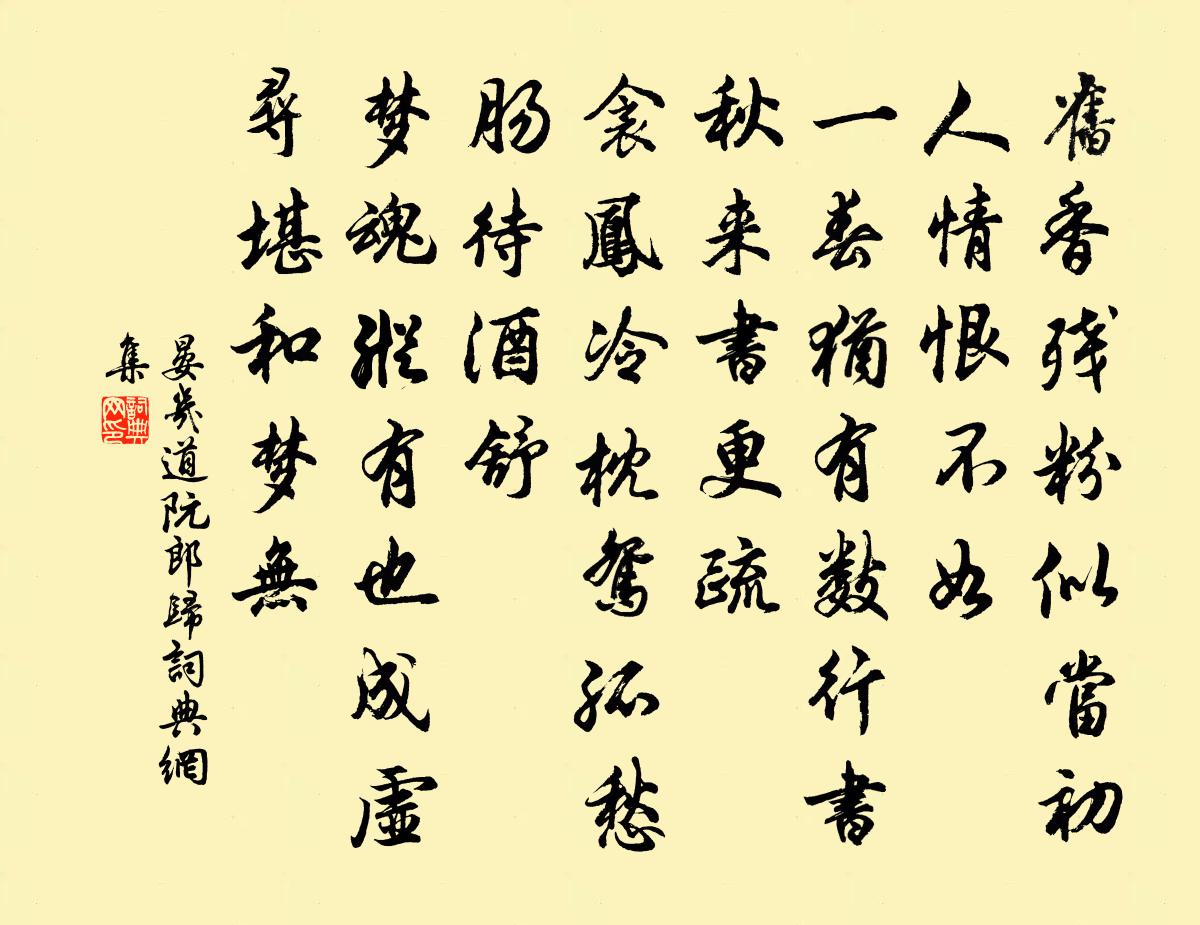 舊香残粉似當初
人情恨不如
一春猶有数行書
秋来書更疏
衾鳳冷枕鴛孤愁
肠待酒舒
梦魂縱有也成虛
尋堪和梦無
晏幾道阮郎歸詞典網
集
詞典
网印